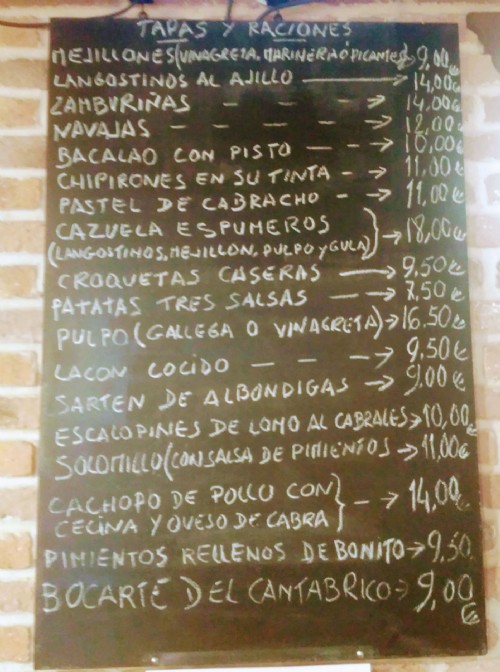 TAPAS Y RACIONES
MEJILLONES (VINAGRETA, MARINERA Ó PICANTES) → 9,00€
LANGOSTINOS AL AJILLO → 14,00€
ZAMBURIÑAS - - - → 14,00€
NAVAJAS - - - - - → 12,00€
BACALAO CON PISTO - - → 10,00€
CHIPIRONES EN SU TINTA - → 11,00€
PASTEL DE CABRACHO - → 11,00€
CAZUELA ESPUMEROS
(LANGOSTINOS, MEJILLON, PULPO y GULA)} → 18,00€
CROQUETAS CASERAS → 9,50€
PATATAS TRES SALSAS - → 7,50€
PULPO (GALLEGA O VINAGRETA) → 16,50€
LACON COCIDO - - - → 9,50€
SARTEN DE ALBONDIGAS → 9,00€
ESCALOPINES DE LOMO AL CABRALES → 10,00€
SOLOMILLO (CON SALSA DE PIMIENTOS → 11,00€
CACHOPO DE POLLO CON
CECINA Y QUESO DE CABRA} - → 14,00€
PIMIENTOS RELLENOS DE BONITO → 9,50
BOCARTE DEL CANTABRICO → 9,00
€